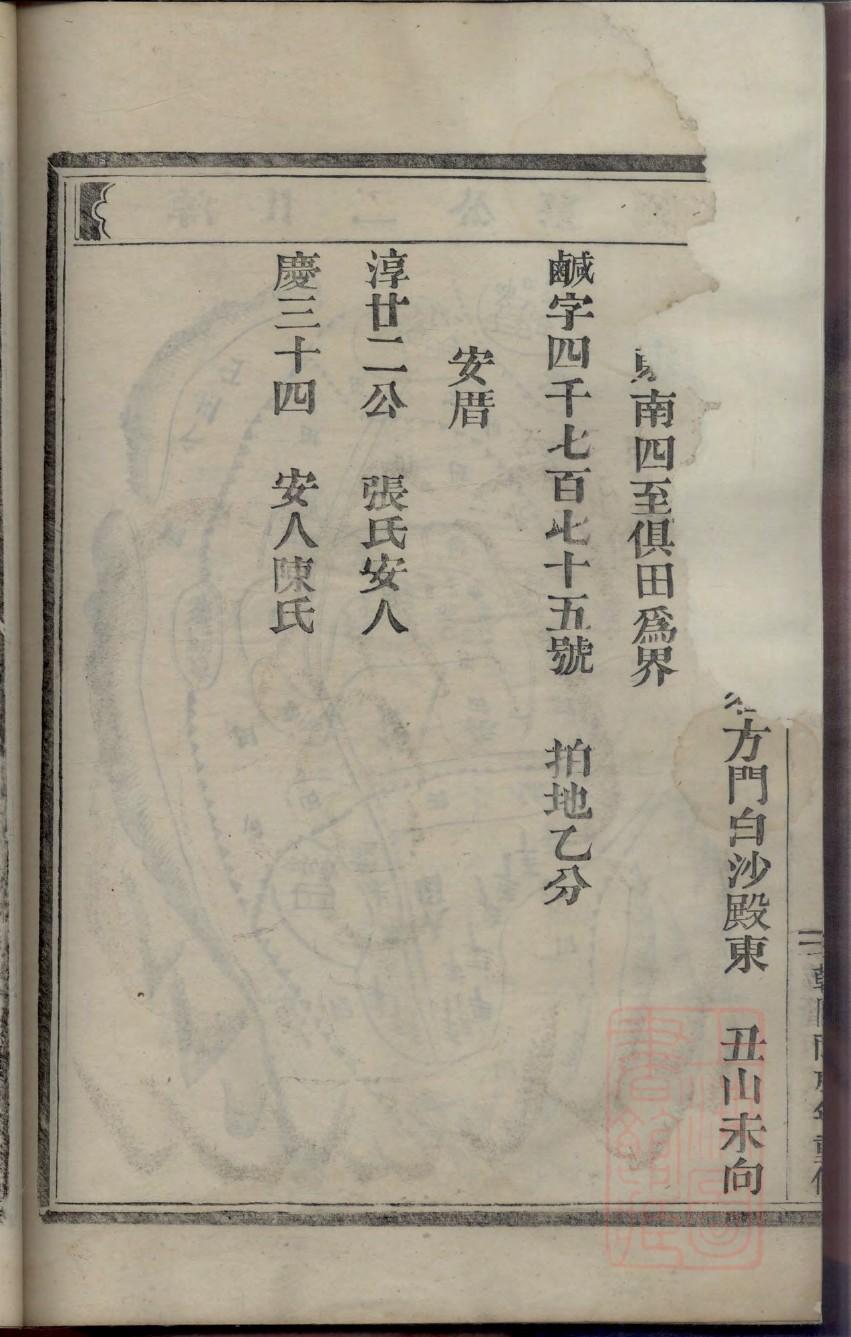 方門白沙殿東　丑山未向
南四至俱田爲界
鹹字四千七百七十五號　拍地乙分
安厝
淳廿二公　張氏安人
慶三十四　安人陳氏